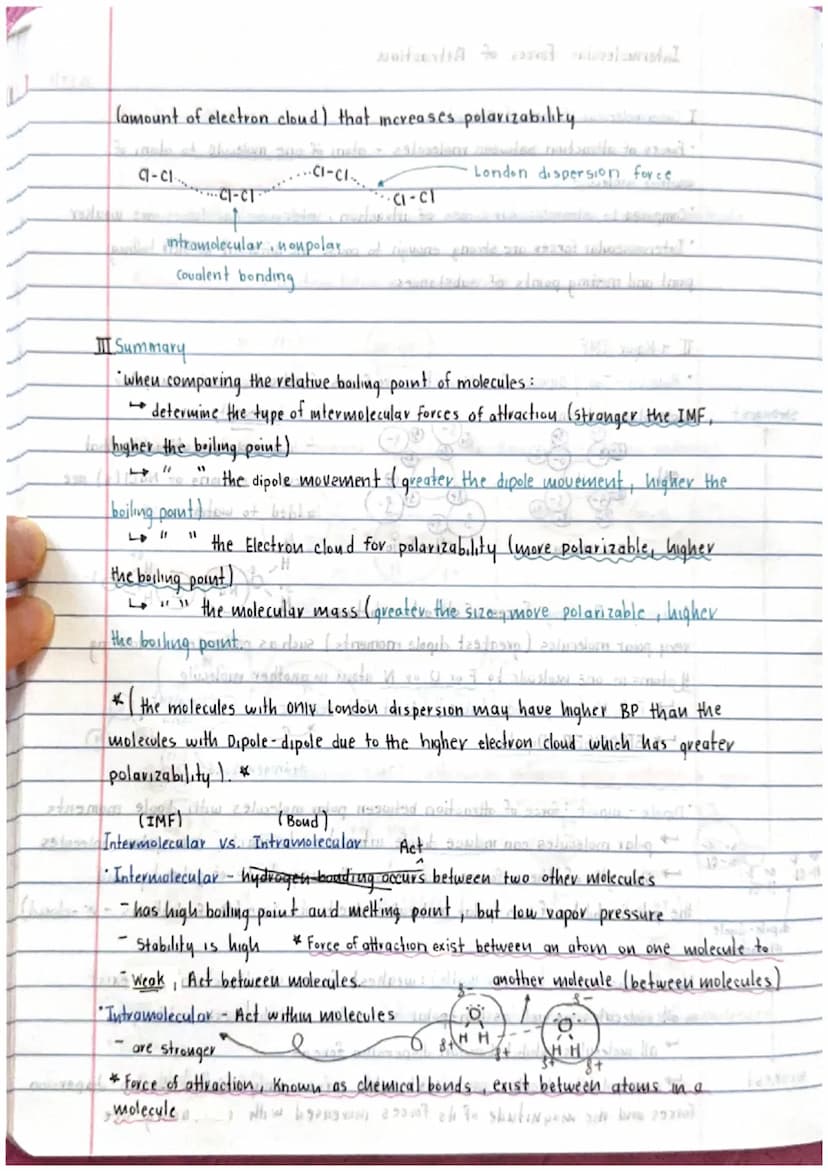 (amount of electron cloud) that increases polarizability
Cl-Cl Cl-Cl London dispersion force
Cl-Cl Cl-Cl
intramolecular, nonpolar
Covalent bonding
III Summary
• when comparing the relative boiling point of molecules:
↳ determine the type of intermolecular forces of attraction (stronger the IMF,
higher the boiling point)
↳ " " the dipole movement (greater the dipole movement, higher the
boiling point)
↳ " " the Electron cloud for polarizability (more polarizable, higher
the boiling point)
↳ " " the molecular mass (greater the size, more polarizable, higher
the boiling point.
* (the molecules with only London dispersion may have higher BP than the
molecules with Dipole-dipole due to the higher electron cloud which has greater
polarizability). *
(IMF) (Bond)
Intermolecular vs. Intramolecular Act
• Intermolecular - hydrogen bonding occurs between two other molecules
- has high boiling point and melting point, but low vapor pressure
- Stability is high * Force of attraction exist between an atom on one molecule to
- Weak, Act between molecules. another molecule (between molecules)
• Intramolecular - Act within molecules
- are stronger
δ- O H H δ+ δ+
δ- O H H δ+ δ+
* Force of attraction, known as chemical bonds, exist between atoms in a
molecule